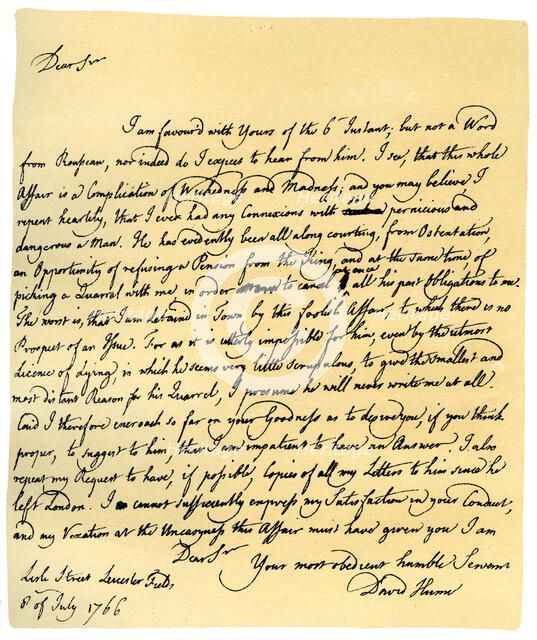 Dear Sir
I am favour'd with Yours of the 6th Instant; but not a Word
from Rousseau, nor indeed do I expect to hear from him. I see, that this whole
Affair is a Complication of Wickedness and Madness; and you may believe, I
repent heartily, that I ever had any Connexions with so pernicious and
dangerous a Man. He has evidently been all along courting, from Ostentation,
an Opportunity of refusing a Pension from the King, and at the same time of
picking a Quarrel with me, in order to cancel at once all his past Obligations to me.
The worst is, that I am detain'd in Town by this foolish Affair, to which there is no
Prospect of an Issue. For as it is utterly impossible for him, even by the utmost
Licence of Lying, in which he seems very little scrupulous, to give the smallest and
most distant Reason for his Quarrel, I presume he will never write me at all.
Coud I therefore encroach so far on your Goodness as to desire you, if you think
proper, to suggest to him, that I am impatient to have an Answer. I also
repeat my Request to have, if possible, Copies of all my Letters to him since he
left London. I cannot sufficiently express my Satisfaction in your Conduct,
and my Vexation at the Uneasyness this Affair must have given you I am
Dear Sir
Your most obedient humble Servant
David Hume
Lisle Street Leicester Fields
8th of July 1766